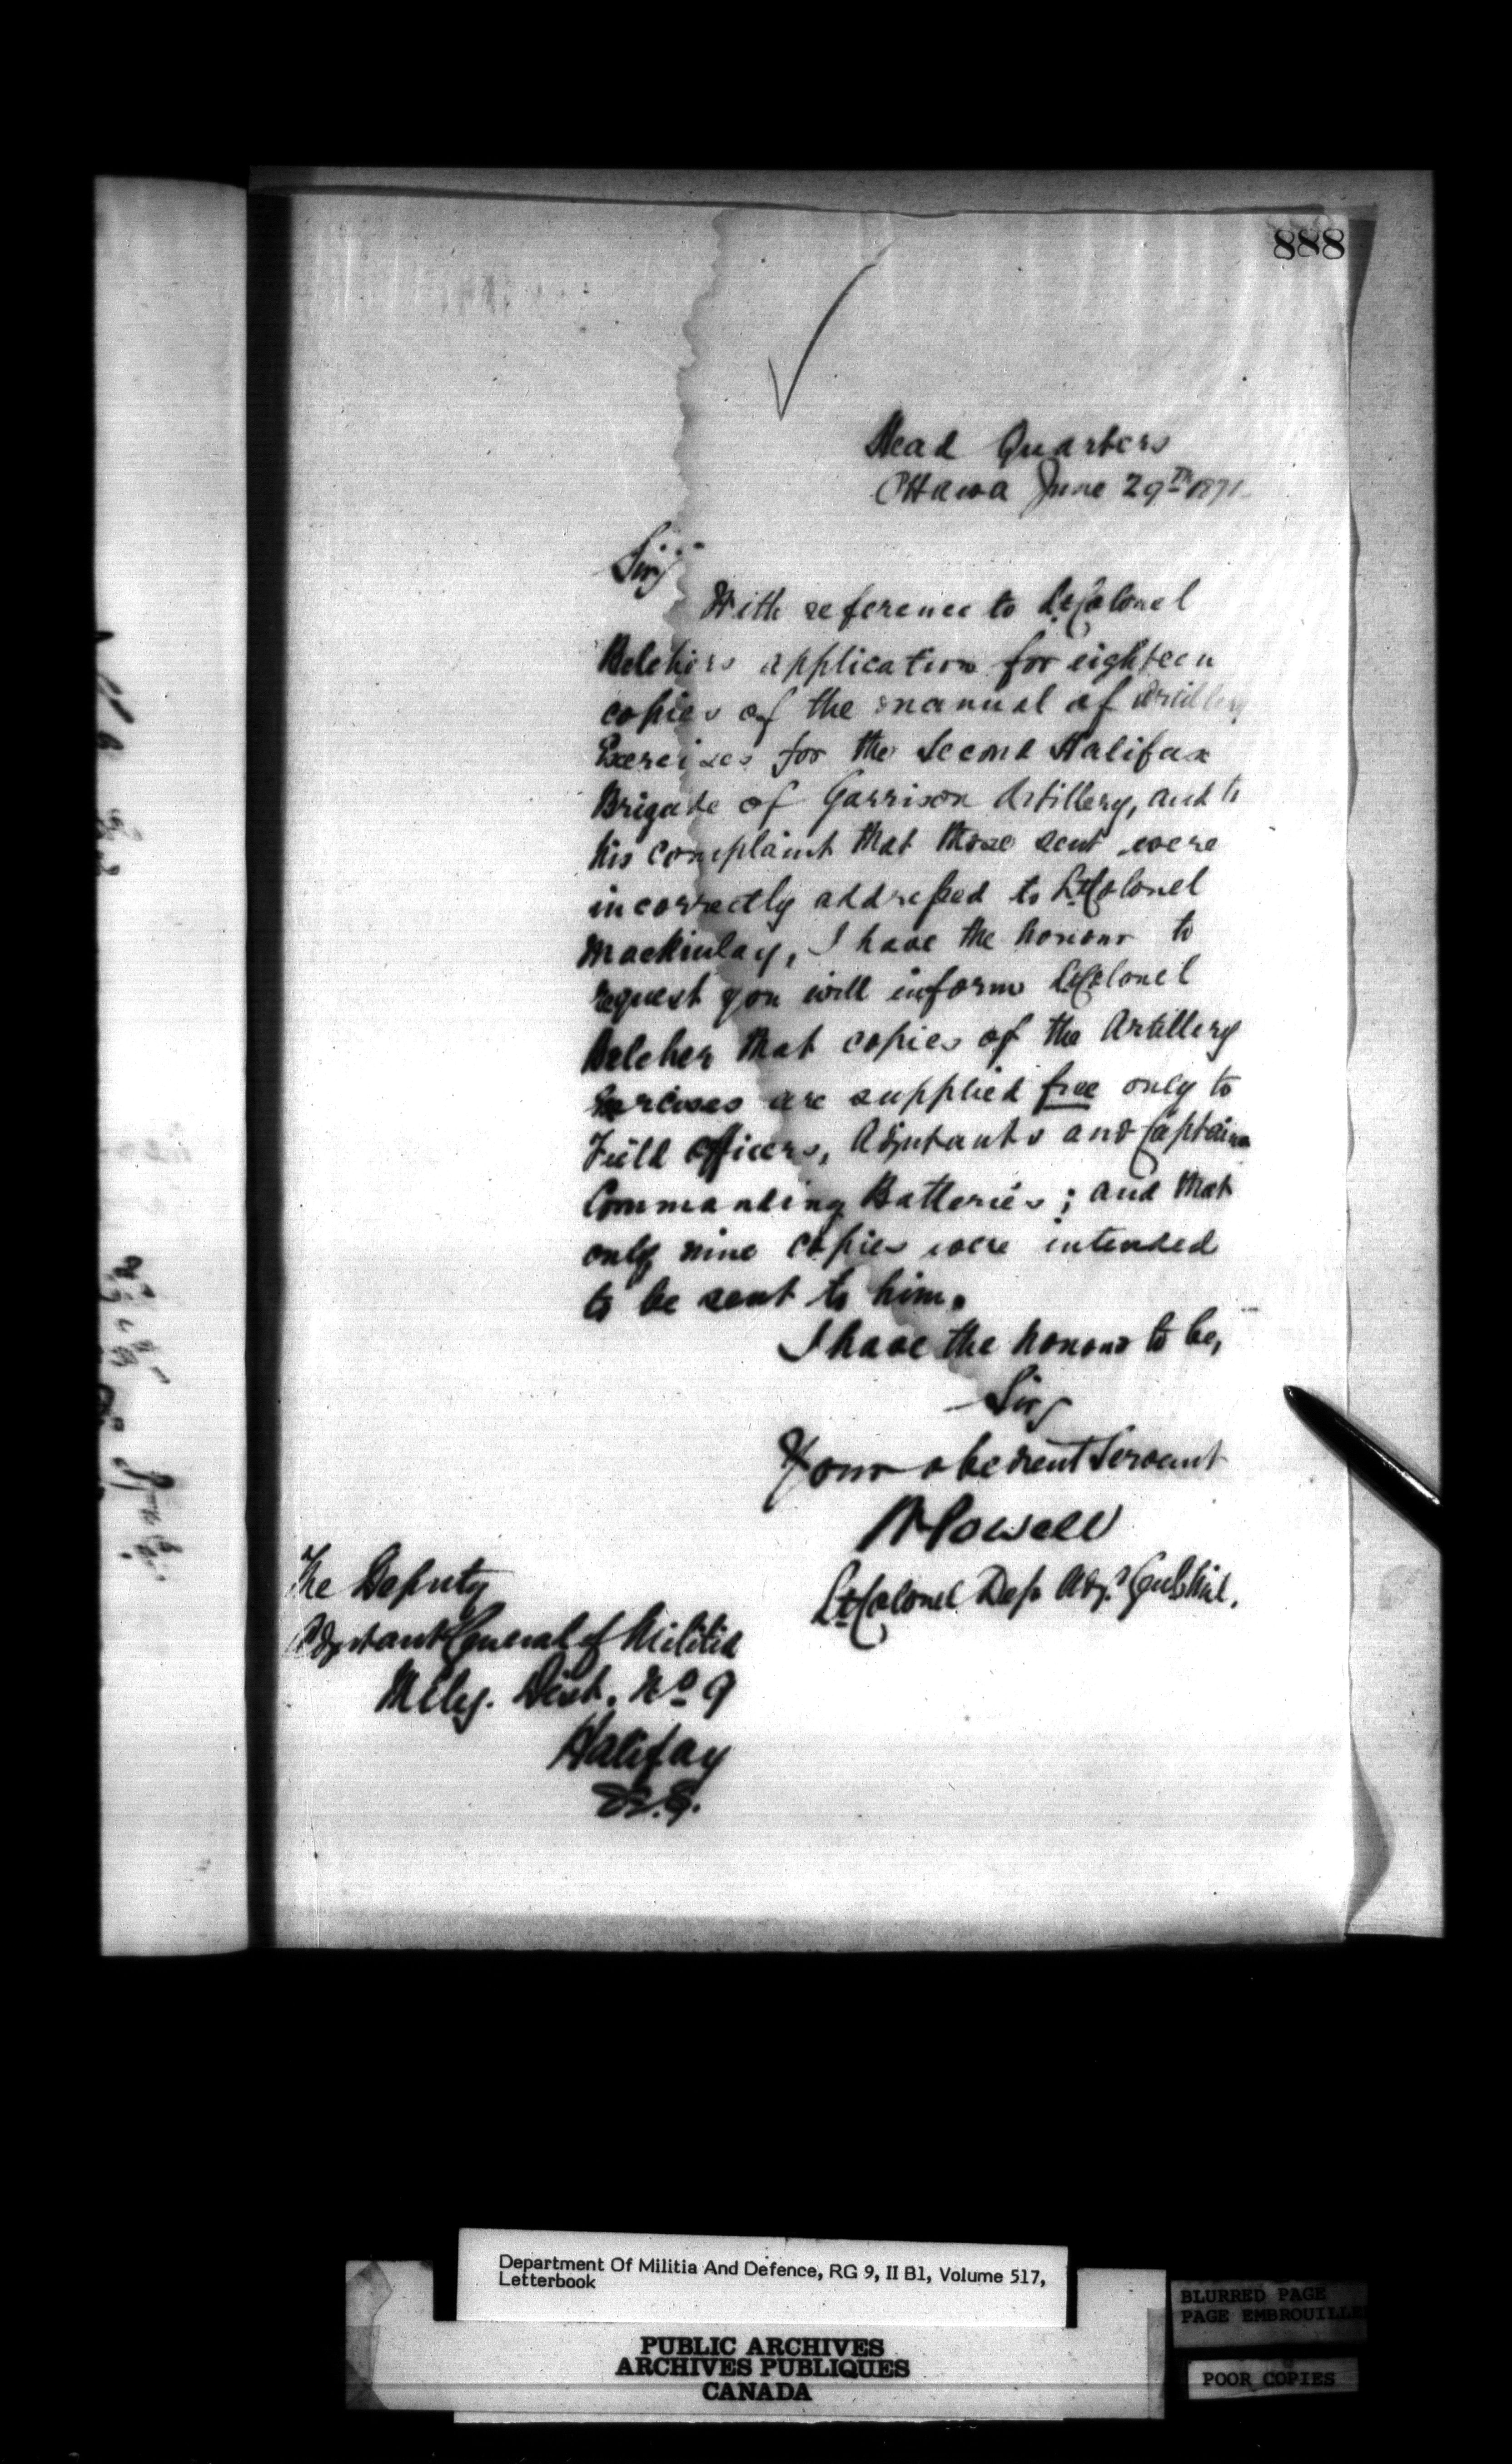 888
Head Quarters
Ottawa June 29th 1871
Sir,
With reference to Lt Colonel
Belchers application for eighteen
copies of the manual of Artillery
Exercises for the Second Halifax
Brigade of Garrison Artillery, and to
his complaint that those sent were
incorrectly addressed to Lt Colonel
Mackinlay, I have the honour to
request you will inform Lt Colonel
Belcher that copies of the Artillery
Exercises are supplied free only to
Field Officers, Adjutants and Captains
Commanding Batteries; and that
only nine copies were intended
to be sent to him.
I have the honour to be,
Sir,
Your obedient Servant
W Powell
Lt Colonel Dep Adjt Genl Mil.
The Deputy
Adjutant General of Militia
Mily. Dist. No 9
Halifax
N.S.
Department Of Militia And Defence, RG 9, II B1, Volume 517,
Letterbook
PUBLIC ARCHIVES
ARCHIVES PUBLIQUES
CANADA
BLURRED PAGE
PAGE EMBROUILLE
POOR COPIES